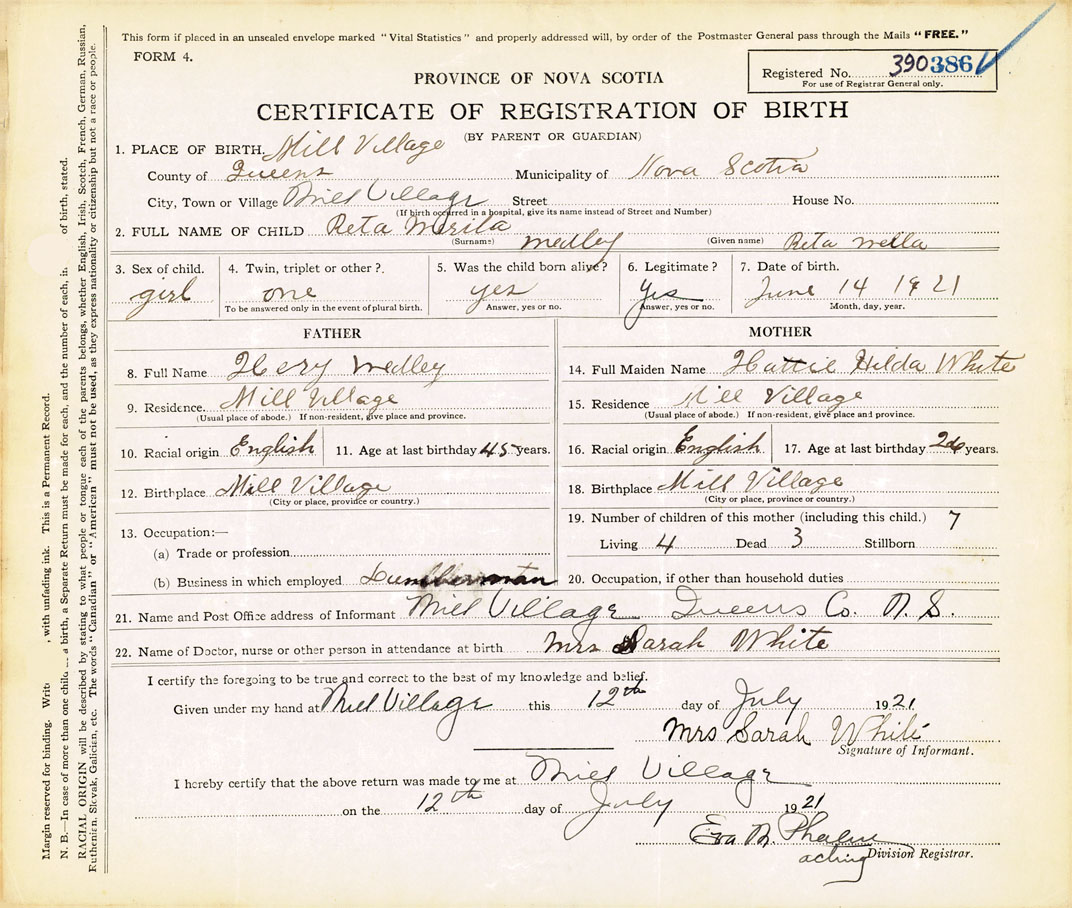 This form if placed in an unsealed envelope marked "Vital Statistics" and properly addressed will, by order of the Postmaster General pass through the Mails "FREE."
FORM 4.
Registered No. 390386
For use of Registrar General only.
PROVINCE OF NOVA SCOTIA
CERTIFICATE OF REGISTRATION OF BIRTH
(BY PARENT OR GUARDIAN)
1. PLACE OF BIRTH. Mill Village
County of Queens Municipality of Nova Scotia
City, Town or Village Mill Village Street House No.
(If birth occurred in a hospital, give its name instead of Street and Number)
2. FULL NAME OF CHILD Reta Merila
(Surname) medley (Given name) Reta wella
3. Sex of child. 4. Twin, triplet or other?. 5. Was the child born alive? 6. Legitimate? 7. Date of birth.
girl one yes yes June 14 1921
To be answered only in the event of plural birth. Answer, yes or no. Answer, yes or no. Month, day, year.
FATHER
8. Full Name Hery Medley
9. Residence. Mill Village
(Usual place of abode.) If non-resident, give place and province.
10. Racial origin English 11. Age at last birthday 45 years.
12. Birthplace Mill Village
(City or place, province or country.)
13. Occupation:—
(a) Trade or profession
(b) Business in which employed Lumberman
MOTHER
14. Full Maiden Name Hattie Hilda White
15. Residence Mill Village
(Usual place of abode.) If non-resident, give place and province.
16. Racial origin English 17. Age at last birthday years.
18. Birthplace Mill Village
(City or place, province or country.)
19. Number of children of this mother (including this child.) 7
Living 4 Dead 3 Stillborn
20. Occupation, if other than household duties
21. Name and Post Office address of Informant Mill Village Queens Co. N.S.
22. Name of Doctor, nurse or other person in attendance at birth Mrs Sarah White
I certify the foregoing to be true and correct to the best of my knowledge and belief.
Given under my hand at Mill Village this 12th day of July 1921
Mrs Sarah White
Signature of Informant.
I hereby certify that the above return was made to me at Mill Village
on the 12th day of July 1921
Eva M.
acting Division Registrar.
Margin reserved for binding. Write , with unfading ink. This is a Permanent Record.
N. B.—In case of more than one child a birth, a Separate Return must be made for each, and the number of each, in of birth, stated.
RACIAL ORIGIN will be described by stating to what people or tongue each of the parents belongs, whether English, Irish, Scotch, French, German, Russian,
Ruthenian, Slovak, Galician, etc. The words "Canadian" or "American" must not be used, as they express nationality or citizenship but not a race or people.